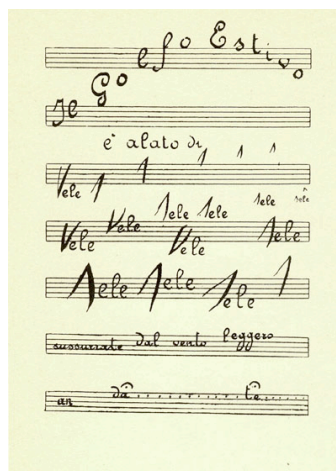 Il Golfo Estivo
è alato di
Vele 1 1 1 1 1
Vele Vele 1ele 1ele Vele 1ele 1ele 1ele
1ele 1ele 1ele 1
sussurrate dal vento leggero
an da............te.........